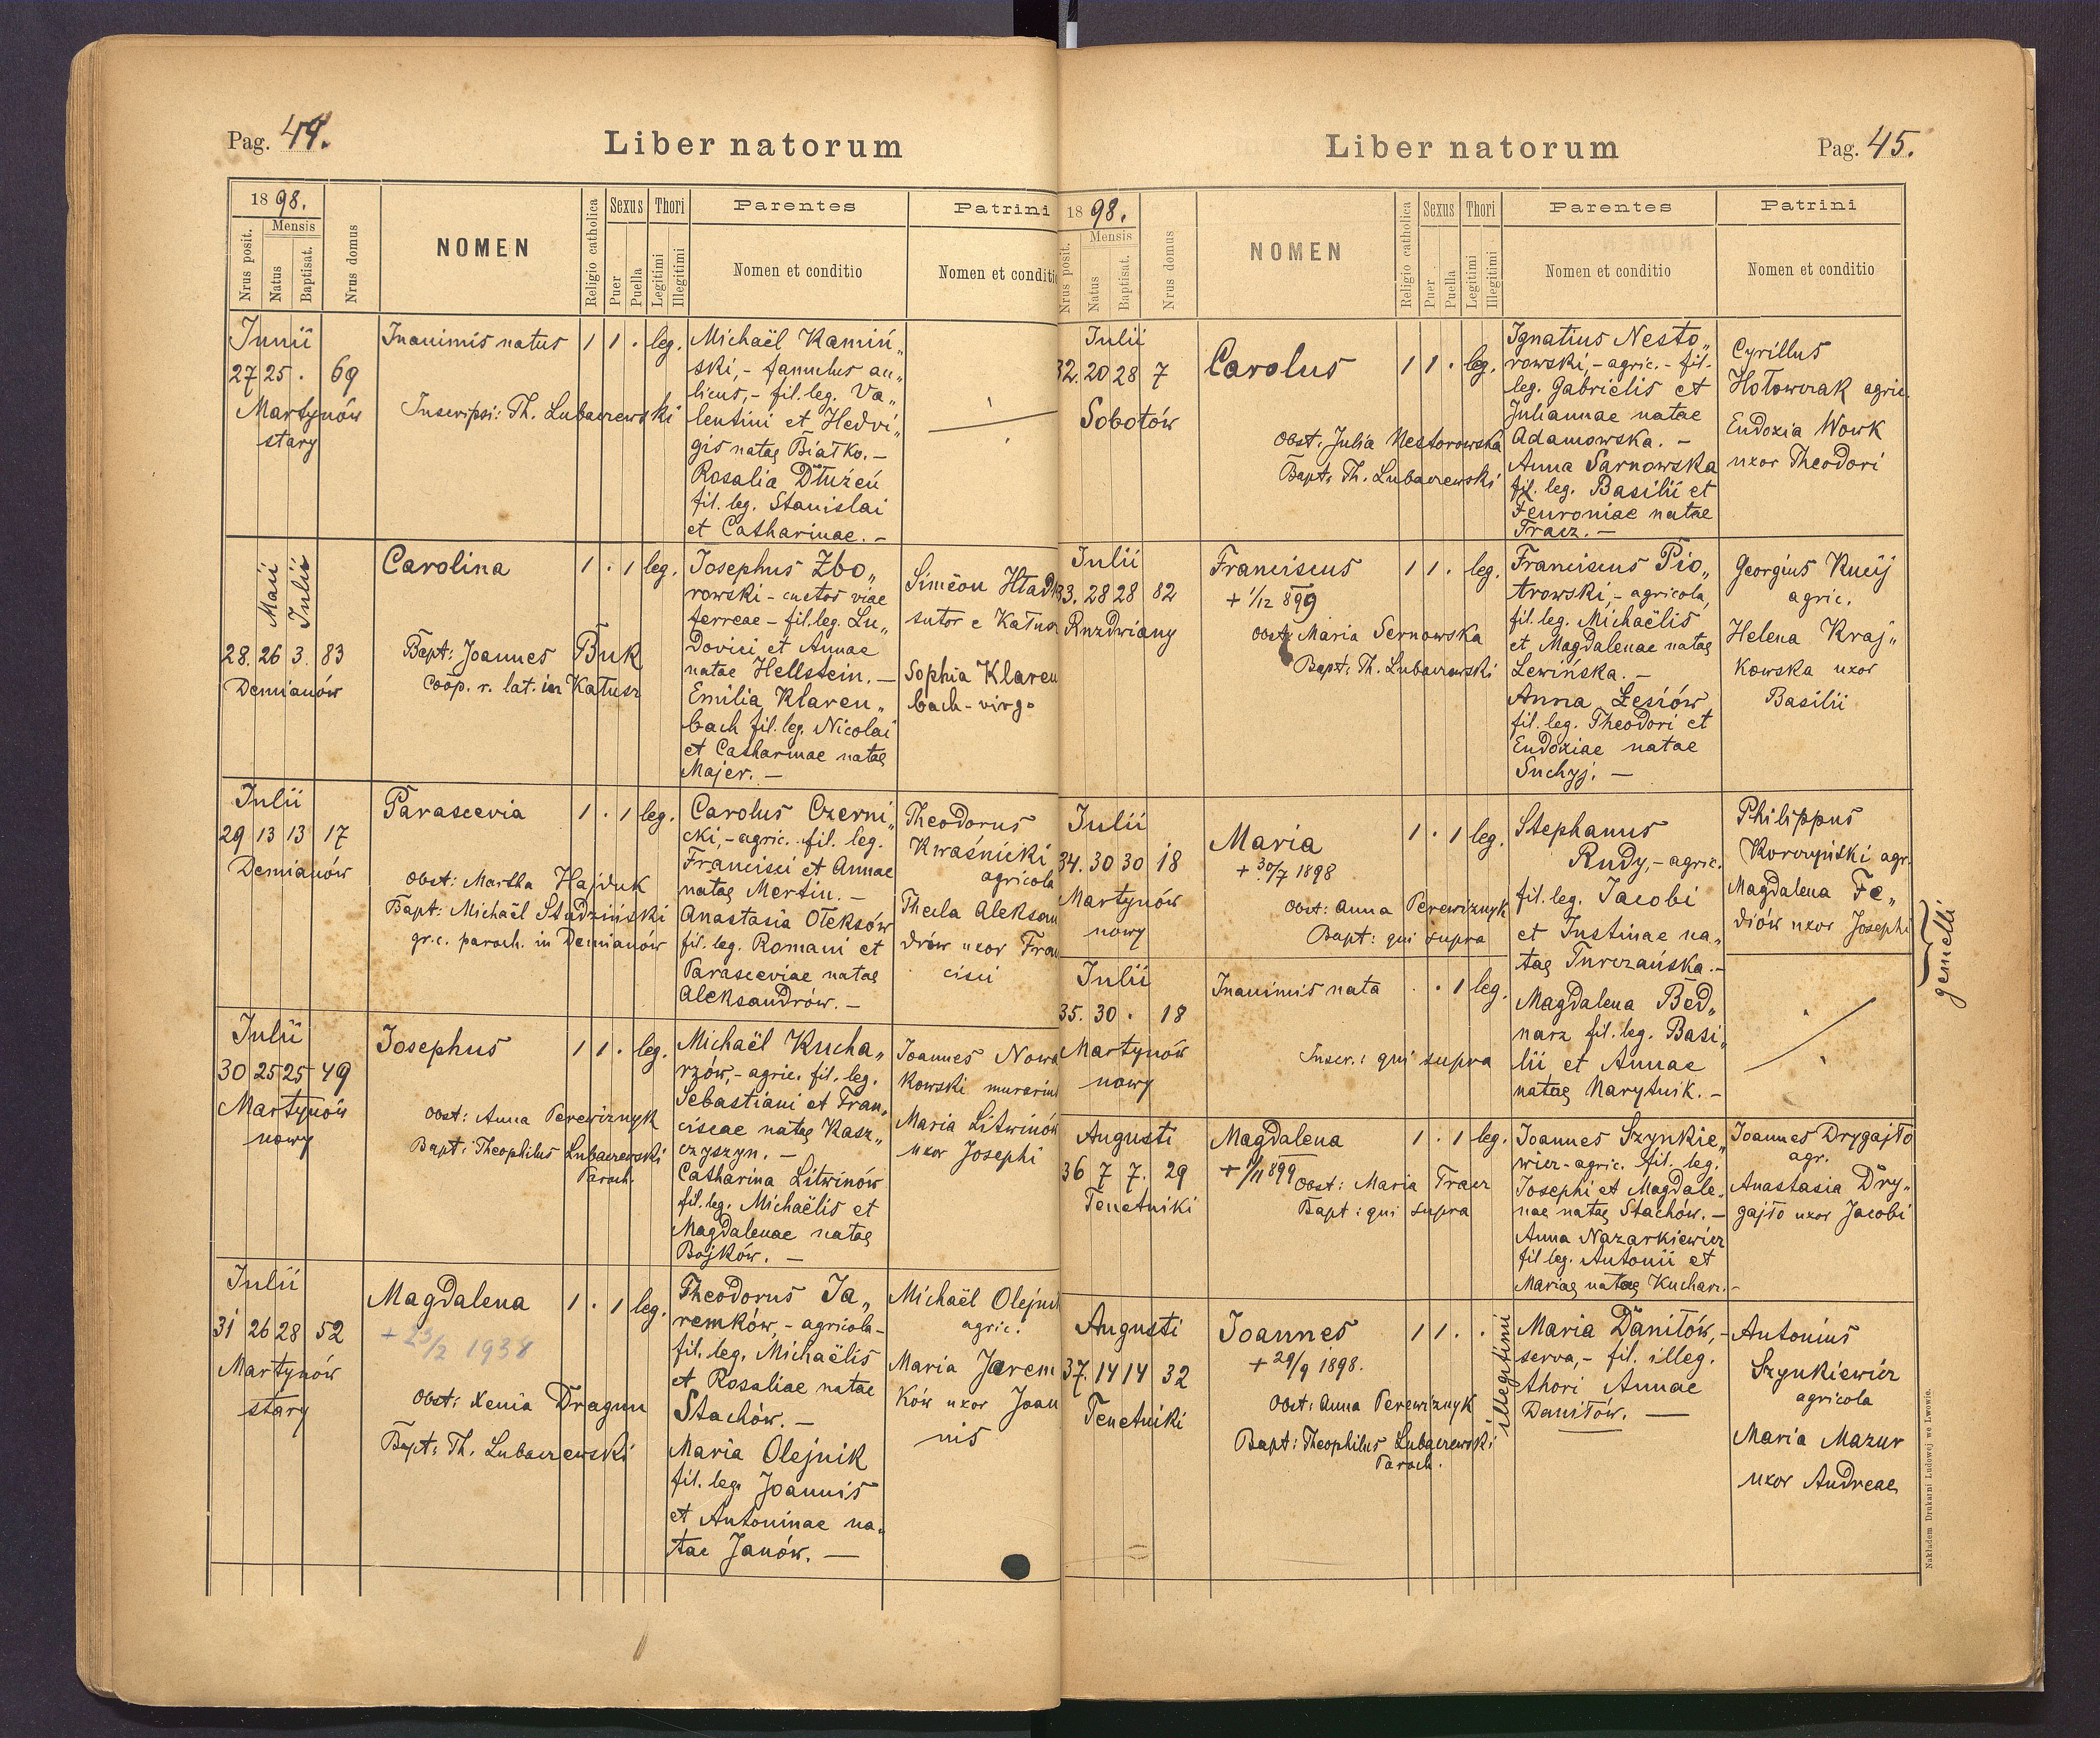 Pag. 44.
Liber natorum
1898.
Nrus posit.
Mensis
Natus
Baptisat.
Nrus domus
NOMEN
Religio catholica
Sexus
Puer
Puella
Thori
Legitimi
Illegitimi
Parentes
Nomen et conditio
Patrini
Nomen et conditi
Junii
27 25 . 69
Martynów
stary
Inanimis natus 1 1 . leg.
Inscripsi: Th. Lubaczewski
Michaël Kamiń„
ski,- famulus au„
licus,- fil. leg. Va„
lentini et Hedvi„
gis natae Białko.-
Rosalia Dłużeń
fil. leg. Stanislai
et Catharinae. -
Maii
Julii
28. 26 3. 83
Demianów
Carolina 1 . 1 leg.
Bapt: Joannes Buk
Coop. r. lat. in Kałusz
Josephus Zbo„
rowski - custos viae
ferreae - fil. leg. Lu„
dovici et Annae
natae Hellstein. -
Emilia Klaren„
bach fil. leg. Nicolai
et Catharinae natae
Majer. -
Simeon Hład
sutor e Kałus
Sophia Klaren
bach - virgo
Julii
29 13 13 17
Demianów
Parascevia 1 . 1 leg.
Obst: Martha Hajduk
Bapt: Michaël Studziński
gr.c. paroch. in Demianów
Carolus Czerni„
cki,- agric. fil. leg.
Francisci et Annae
natae Mertin. -
Anastasia Oleksów
fil. leg. Romani et
Parasceviae natae
Aleksandrów. -
Theodorus
Kwaśnicki
agricola
Thecla Aleksan
drów uxor Fran
cisci
Julii
30 25 25 49
Martynów
nowy
Josephus 1 1 . leg.
Obst: Anna Perewiznyk
Bapt: Theophilus Lubaczewski
Paroch.
Michaël Kucha„
rzów,- agric. fil. leg.
Sebastiani et Fran„
ciscae natae Kasz„
czyszyn. -
Catharina Litwinów
fil. leg. Michaëlis et
Magdalenae natae
Bojków. -
Joannes Nowa
kowski murariu
Maria Litwinów
uxor Josephi
Julii
31 26 28 52
Martynów
stary
Magdalena 1 . 1 leg.
Obst: Xenia Dragun
Bapt: Th. Lubaczewski
Theodorus Ja„
remków,- agricola-
fil. leg. Michaëlis
et Rosaliae natae
Stachów. -
Maria Olejnik
fil. leg. Joannis
et Antoninae na„
tae Janów. -
Michaël Olejni
agric.
Maria Jarem
ków uxor Joan
nis
Liber natorum
Pag. 45.
1898.
Nrus posit.
Mensis
Natus
Baptisat.
Nrus domus
NOMEN
Religio catholica
Sexus
Puer
Puella
Thori
Legitimi
Illegitimi
Parentes
Nomen et conditio
Patrini
Nomen et conditio
Julii
32. 20 28 7
Sobotów
Carolus 1 1 . leg.
Obst. Julia Nestorowska
Bapt: Th. Lubaczewski
Ignatius Nesto„
rowski,- agric. - fil.
leg. Gabrielis et
Juliannae natae
Adamowska. -
Anna Sarnowska
fil. leg. Basilii et
Feuroniae natae
Tracz. -
Cyrillus
Hołowczak agric.
Eudoxia Wowk
uxor Theodori
Julii
33. 28 28 82
Ruzdwiany
Franciscus 1 1 . leg.
+ 1/12 899
Obst: Maria Sernowska
Bapt: Th. Lubaczewski
Franciscus Pio„
trowski,- agricola,
fil. leg. Michaëlis
et Magdalenae natae
Lewińska. -
Anna Łesiów
fil. leg. Theodori et
Eudoxiae natae
Suchyj. -
Georgius Kucij
agric.
Helena Kraj„
kowska uxor
Basilii
Julii
34. 30 30 18
Martynów
nowy
Maria 1 . 1 leg.
+ 30/7 1898
Obst: Anna Perewiznyk
Bapt: qui supra
Stephanus
Rudy,- agric.
fil. leg. Jacobi
et Justinae na„
tae Turczańska. -
Magdalena Bed„
narz fil. leg. Basi„
lii et Annae
natae Marytnik. -
Philippus
Korczyński agr.
Magdalena Fe„
diów uxor Josephi
gemelli
Julii
35. 30 . 18
Martynów
nowy
Inanimis nata . . 1 leg.
Inscr.: qui supra
Augusti
36 7 7. 29
Tenetniki
Magdalena 1 . 1 leg.
Obst: Maria Tracz
Bapt: qui supra
Joannes Szynkie„
wicz - agric. fil. leg.
Josephi et Magdale„
nae natae Stachów. -
Anna Nazarkiewicz
fil leg. Antonii et
Mariae natae Kucharz. -
Joannes Drygajło
agr.
Anastasia Dry„
gajło uxor Jacobi
Augusti
37. 14 14 32
Tenetniki
Joannes 1 1 . .
illegitimi
+ 29/9 1898.
Obst: Anna Perewiznyk
Bapt: Theophilus Lubaczewski
Paroch.
Maria Daniłów,-
serva,- fil. illeg.
thori Annae
Daniłów. -
Antonius
Szynkiewicz
agricola
Maria Mazur
uxor Andreae
Nakładem Drukarni Ludowej we Lwowie.